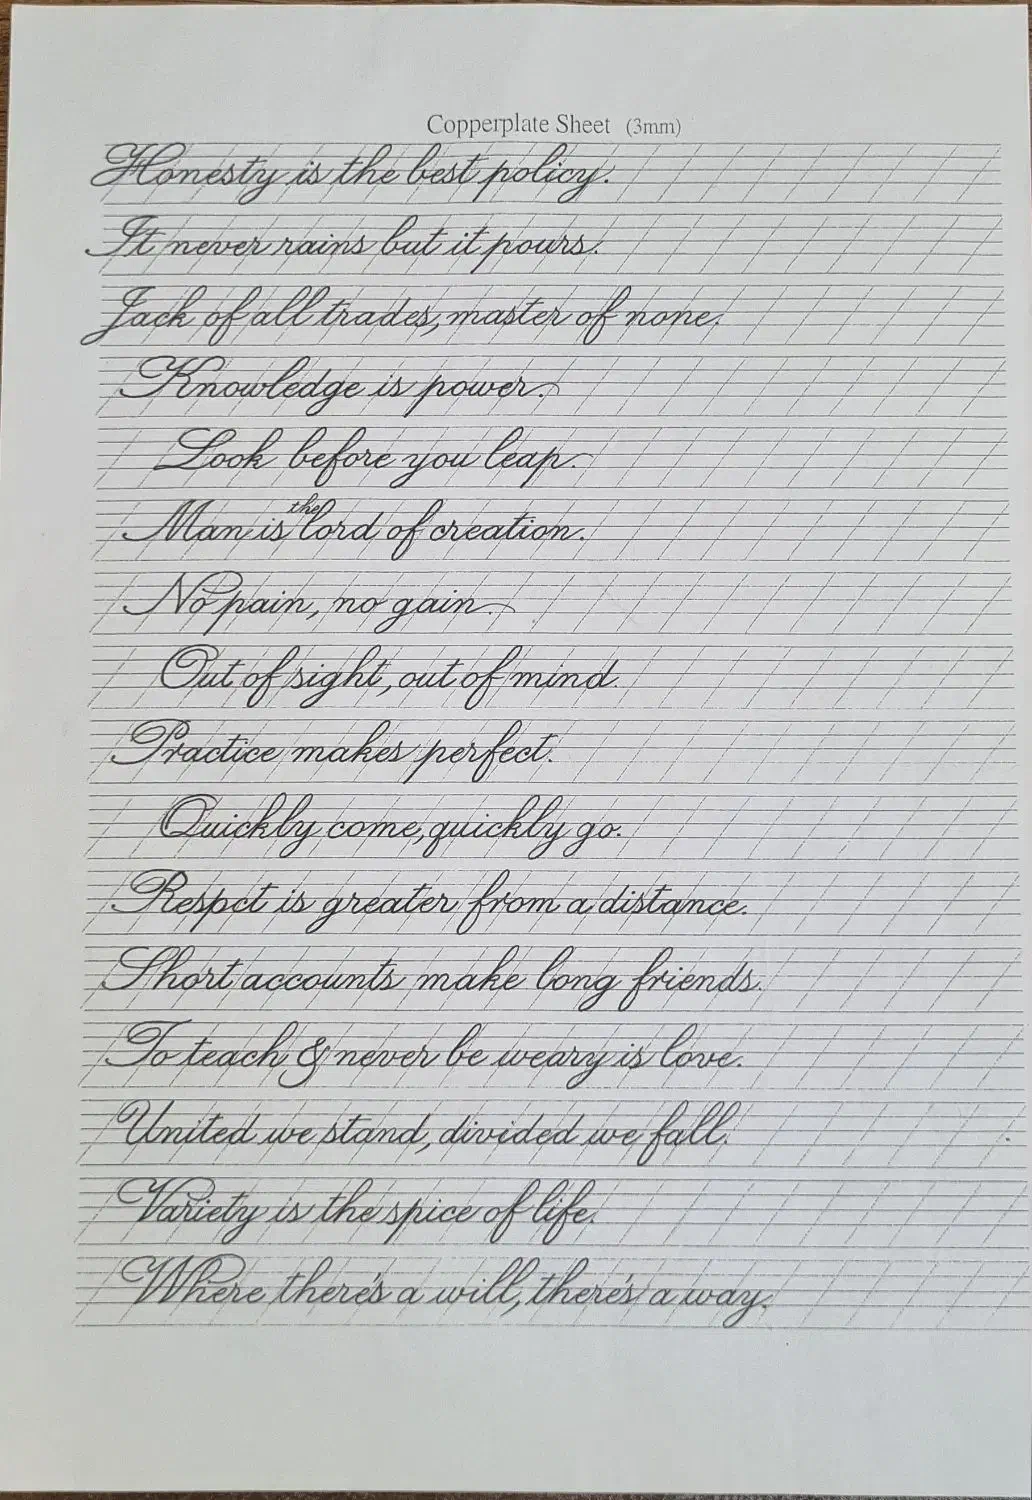 Copperplate Sheet (3mm)
Honesty is the best policy.
It never rains but it pours.
Jack of all trades, master of none.
Knowledge is power.
Look before you leap.
Man is the lord of creation.
No pain, no gain.
Out of sight, out of mind.
Practice makes perfect.
Quickly come, quickly go.
Respct is greater from a distance.
Short accounts make long friends.
To teach & never be weary is love.
United we stand, divided we fall.
Variety is the spice of life.
Where there's a will, there's a way.